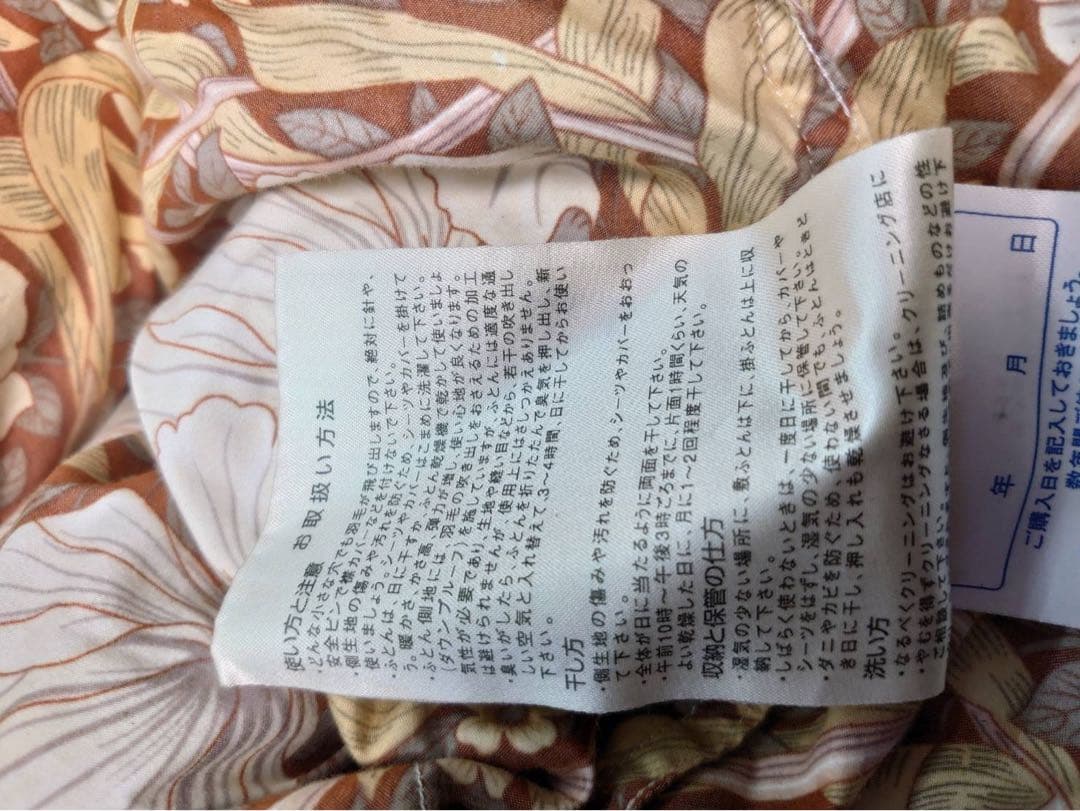 お取扱い方法
使い方と注意
・どんな小さな穴でも羽毛が飛び出しますので、絶対に針や、
安全ピンで襟カバーなどを付けないで下さい。
・側生地の傷みや汚れを防ぐため、シーツやカバーを掛けて
使いましょう。シーツやカバーはこまめに洗濯して下さい。
・ふとんは、日に干すか、ふとん乾燥機で乾かして使いましょ
う。暖かさ、かさ高、弾力が増し、使い心地が良くなります。
・ふとん側地には、羽毛の吹き出しをおさえるための加工
(ダウンプルーフ)を施していますが、ふとんには適度な通
気性が必要であり、生地や縫い目などから、若干の吹き出し
は避けられませんが、使用上にはさしつかえありません。
・臭いがしたら、ふとんを折りたたんで臭気を押し出し、新
しい空気と入れ替えて、3〜4時間、日に干してからお使い
下さい。
干し方
・側生地の傷みや汚れを防ぐため、シーツやカバーをおおっ
て下さい。
・全体が日に当たるように両面を干して下さい。
・午前10時〜午後3時ごろまでに、片面1時間くらい、天気の
よい乾燥した日に、月に1〜2回程度干して下さい。
収納と保管の仕方
・湿気の少ない場所に、敷ふとんは下に、掛ふとんは上に収
納して下さい。
・しばらく使わないときは、一度日に干してから、カバーや
シーツをはずし、湿気の少ない場所に保管して下さい。
・ダニやカビを防ぐため、使わない間でも、ふとんはときど
き日に干し、押し入れも乾燥させましょう。
洗い方
・なるべくクリーニングはお避け下さい。
・やむを得ずクリーニングなさる場合は、クリーニング店に
ご相談して下さい。
年 月 日
ご購入日を記入しておきましょう。